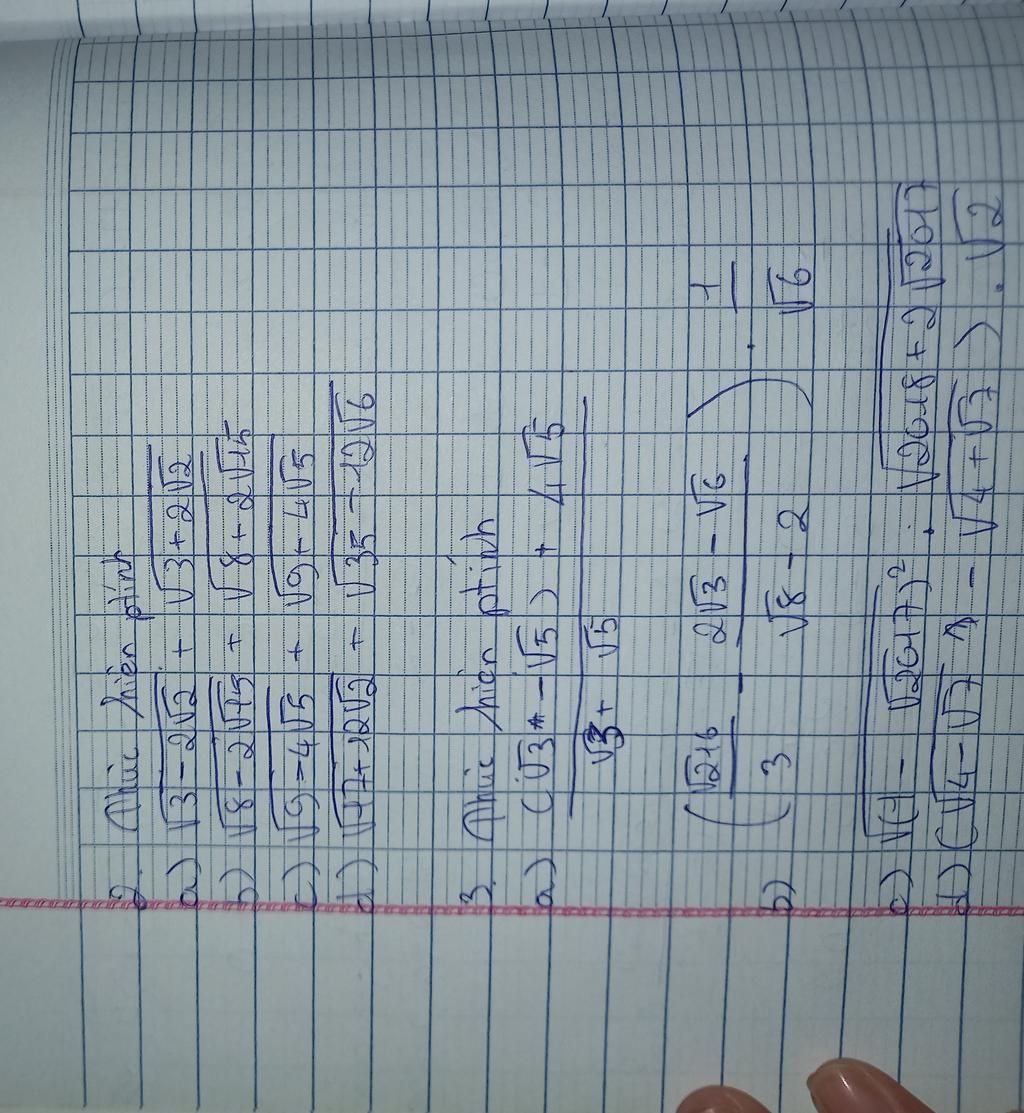 2. Thực hiện ptính
a) √3-2√2 + √3+2√2
b) √8-2√15 + √8+2√15
c) √9-4√5 + √9+4√5
d) √17+12√2 + √35-12√6
3. Thực hiện ptính
a) (√3 - √5) + 4√5
√3 + √5
(√216 - 2√3-√6) . 1
b) 3 √8-2 √6
c) √(1-√2017)² . √2018+2√2017
d) (√4-√7 - √4+√7) . √2